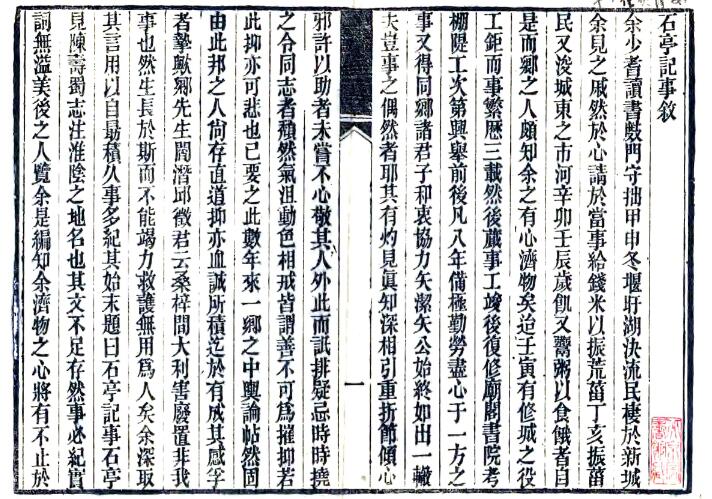 石亭記事敘
余少者讀書數門守拙甲申冬堰圩湖決流民棲於新城
余見之戚然於心請於當事給錢米以振荒菑丁亥振菑
民又浚城東之市河辛卯壬辰歲飢又鬻粥以食餓者自
是而鄉之人頗知余之有心濟物矣迨壬寅有修城之役
工鉅而事繁歷三載然後蕆事工竣後復修廟閣書院考
棚隄工次第興舉前後凡八年備極勤勞盡心于一方之
事又得同鄉諸君子和衷協力矢潔矢公始終如出一轍
夫豈事之偶然者耶其有灼見眞知深相引重折節傾心
一
邪許以助者未嘗不心敬其人外此而詆排疑忌時時撓
之令同志者頹然氣沮動色相戒皆謂善不可爲摧抑若
此抑亦可悲也已要之此數年來一鄉之中輿論帖然固
由此邦之人尙存直道抑亦血誠所積迄於有成其感孚
者摯歟鄉先生閻潛邱徵君云桑梓間大利害廢置非我
事也然生長於斯而不能竭力救護無用爲人矣余深取
其言用以自勗積久事多紀其始末題曰石亭記事石亭
見陳壽蜀志注淮陰之地名也其文不足存然事必紀實
詞無溢美後之人覽余是編知余濟物之心將有不止於